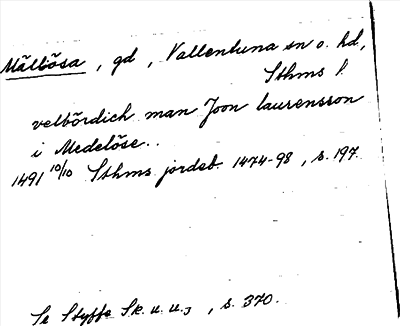 Mällösa, gd, Vallentuna sn o. hd,
Sthms l.
velbördich man Joon laurensson
i Medelöse..
1491 10/10 Sthms jordeb. 1474-98, s. 197.
Se Styffe Sk. u. u.3, s. 370.